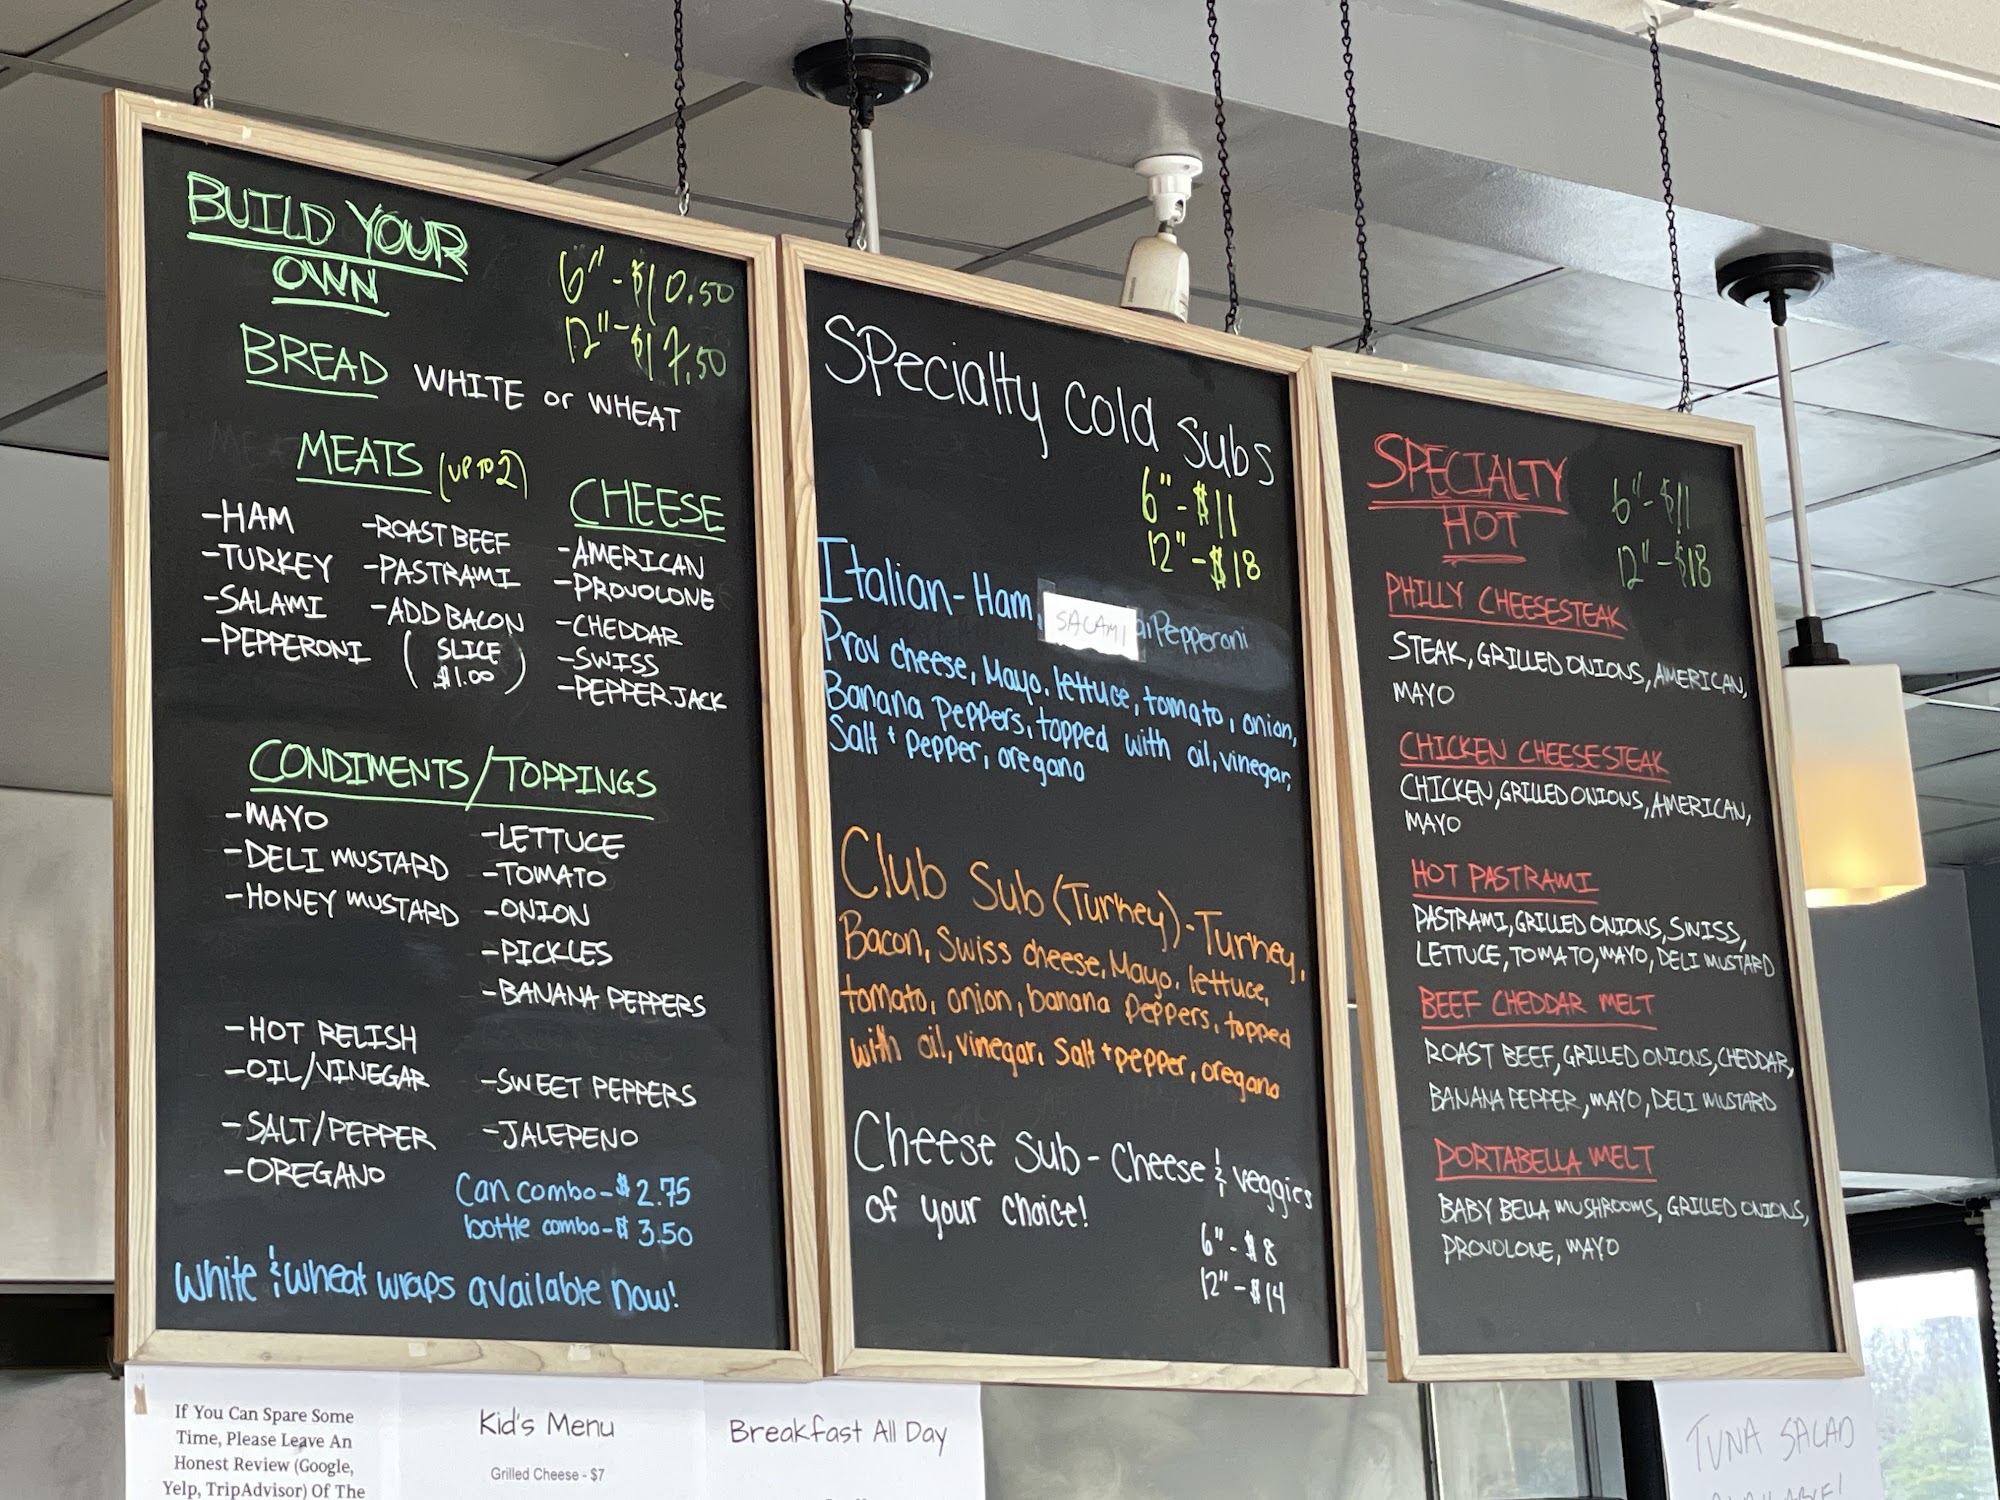 BUILD YOUR
OWN
6" - $10.50
12" - $17.50
BREAD WHITE or WHEAT
MEATS (UP TO 2)
-HAM
-TURKEY
-SALAMI
-PEPPERONI
-ROAST BEEF
-PASTRAMI
-ADD BACON
( SLICE )
$1.00
CHEESE
-AMERICAN
-PROVOLONE
-CHEDDAR
-SWISS
-PEPPERJACK
CONDIMENTS/TOPPINGS
-MAYO
-DELI MUSTARD
-HONEY MUSTARD
-HOT RELISH
-OIL/VINEGAR
-SALT/PEPPER
-OREGANO
-LETTUCE
-TOMATO
-ONION
-PICKLES
-BANANA PEPPERS
-SWEET PEPPERS
-JALEPENO
Can combo-$2.75
bottle combo-$3.50
White & wheat wraps available now!
Specialty Cold Subs
6" - $11
12" - $18
Italian - Ham, SALAMI Pepperoni
Prov cheese, Mayo, lettuce, tomato, onion,
Banana Peppers, topped with oil, vinegar,
Salt + pepper, oregano
Club Sub (Turkey) - Turkey,
Bacon, Swiss cheese, Mayo, lettuce,
tomato, onion, banana Peppers, topped
with oil, vinegar, Salt + pepper, oregano
Cheese Sub - Cheese & veggies
of your choice!
6" - $8
12" - $14
SPECIALTY
HOT
6" - $11
12" - $18
PHILLY CHEESESTEAK
STEAK, GRILLED ONIONS, AMERICAN,
MAYO
CHICKEN CHEESESTEAK
CHICKEN, GRILLED ONIONS, AMERICAN,
MAYO
HOT PASTRAMI
PASTRAMI, GRILLED ONIONS, SWISS,
LETTUCE, TOMATO, MAYO, DELI MUSTARD
BEEF CHEDDAR MELT
ROAST BEEF, GRILLED ONIONS, CHEDDAR,
BANANA PEPPER, MAYO, DELI MUSTARD
PORTABELLA MELT
BABY BELLA MUSHROOMS, GRILLED ONIONS,
PROVOLONE, MAYO
If You Can Spare Some
Time, Please Leave An
Honest Review (Google,
Yelp, TripAdvisor) Of The
Kid's Menu
Grilled Cheese - $7
Breakfast All Day
TUNA SALAD
AVAILABLE!